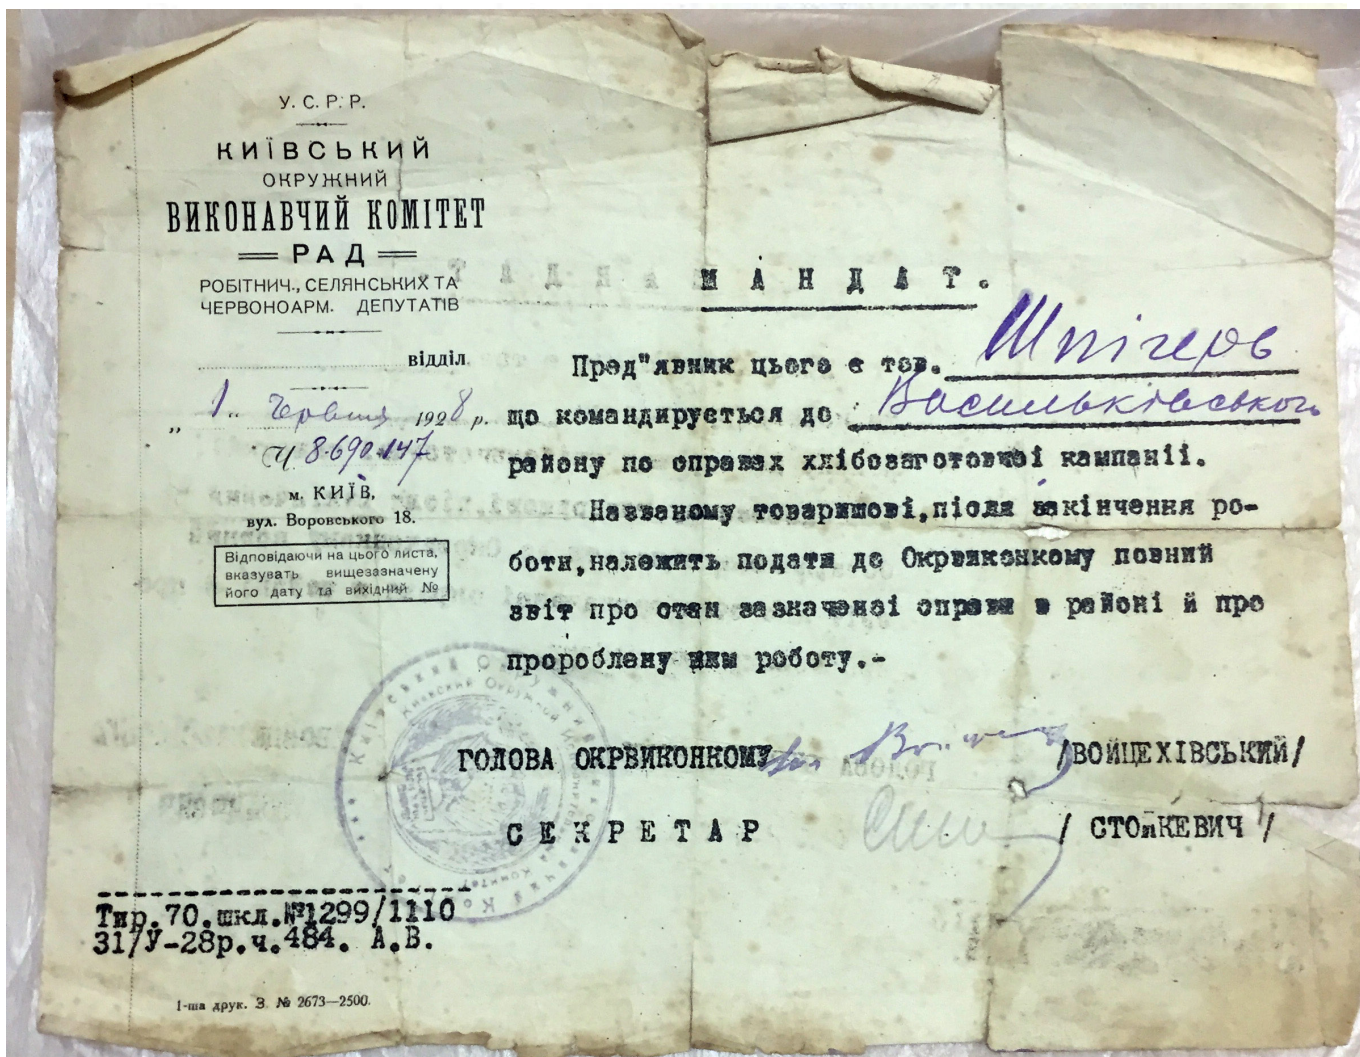 У. С. Р. Р.
КИЇВСЬКИЙ
ОКРУЖНИЙ
ВИКОНАВЧИЙ КОМІТЕТ
РАД
РОБІТНИЧ., СЕЛЯНСЬКИХ ТА
ЧЕРВОНОАРМ. ДЕПУТАТІВ
відділ.
„ 1 „ Червня 1928 р.
Ч 8.690.147
м. КИЇВ,
вул. Воровського 18.
Відповідаючи на цього листа,
вказувать вищезазначену
його дату та вихідний №
МАНДАТ.
Пред"явник цього є тов. Шпігель
що командирується до Васильківського
району по справах хлібозаготовчої кампанії.
Названому товаришові, після закінчення ро-
боти, належить подати до Окрвиконкому повний
звіт про стан зазначеної справи в районі й про
пророблену ним роботу.-
ГОЛОВА ОКРВИКОНКОМУ /ВОЙЦЕХІВСЬКИЙ/
СЕКРЕТАР / СТОЙКЕВИЧ /
Тир.70.шкл.№1299/1110
31/У-28р.ч.484. А.В.
1-ша друк. З. № 2673—2500.